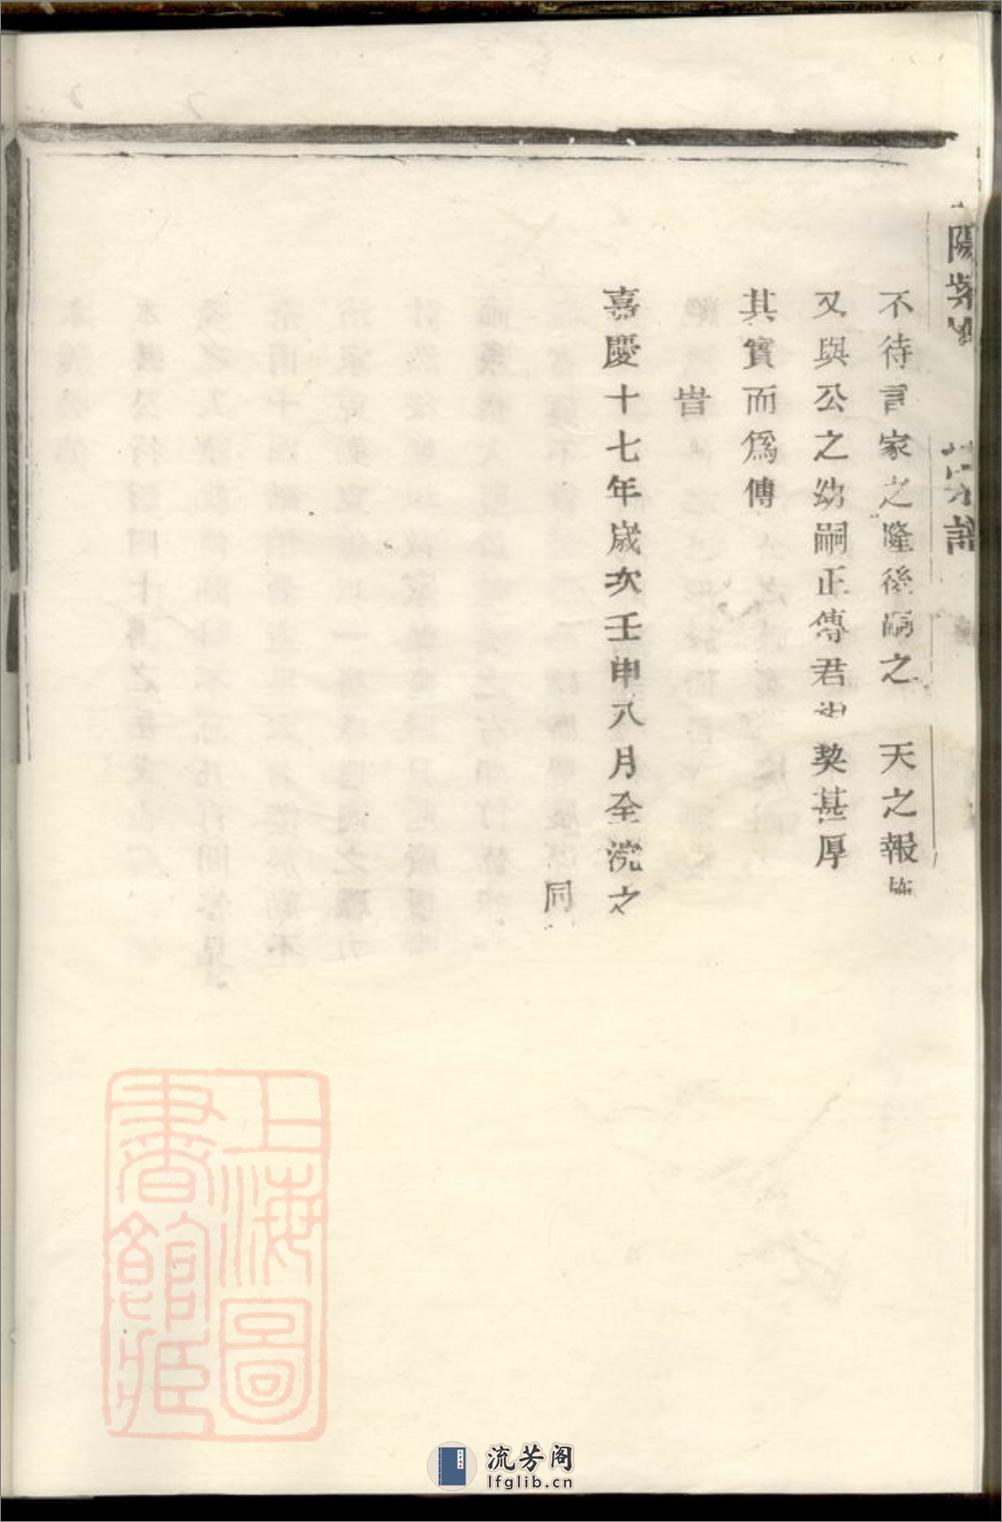 不待言家之隆後嗣之 天之報施
又與公之幼嗣正傳君契甚厚
其實而爲傳
旹
嘉慶十七年歲次壬申八月全浣之
同
陽 宗譜
上海圖書館藏
流芳阁
lfglib.cn